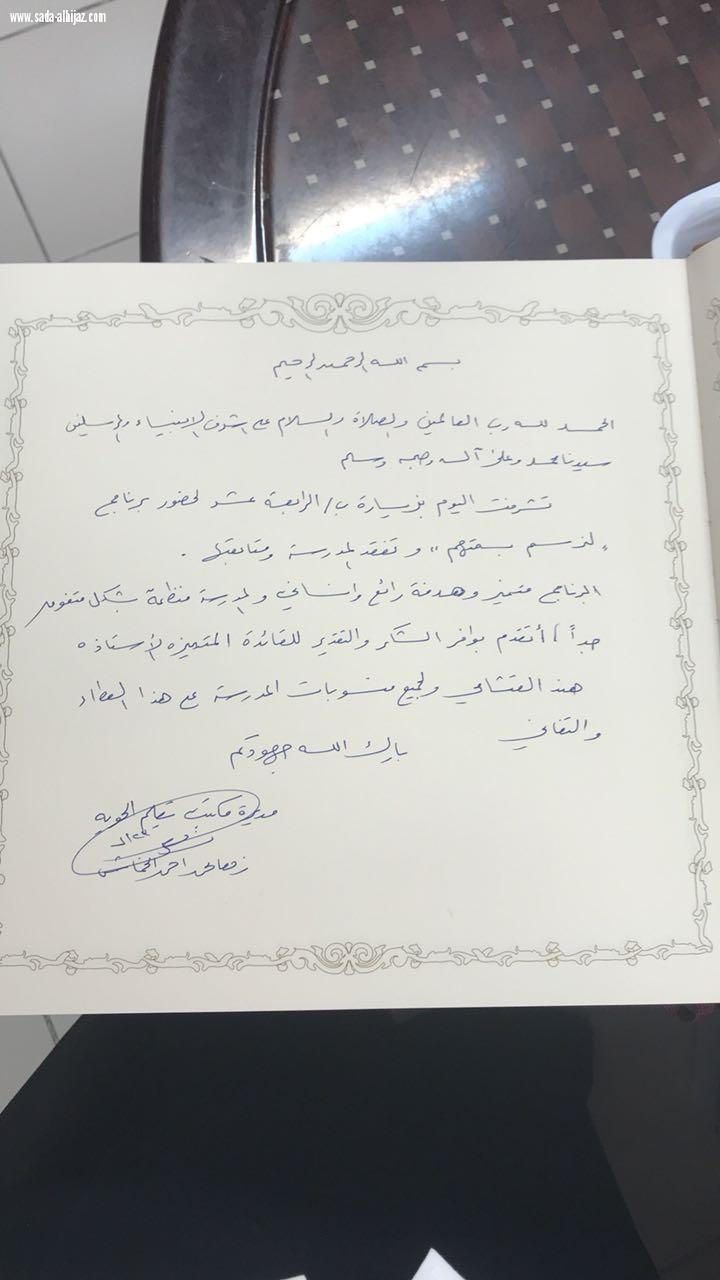 www.sada-alhijaz.com
بسم الله الرحمن الرحيم
الحمد لله رب العالمين والصلاة والسلام على اشرف الانبياء والمرسلين
سيدنا محمد وعلى آله وصحبه وسلم
تشرفت اليوم بزيارة ب/الرابعة عشر لحضور برنامج
"لنرسم بسمتهم" وتفقد المدرسة ومتابعتها.
البرنامج متميز وهدفة رائع وانساني والمدرسة منظمة بشكل متفوق
جداً أتقدم بوافر الشكر والتقدير للقائدة المتميزه الأستاذه
هند القثامي ولجميع منسوبات المدرسة على هذا العطاء
والتفاني
بارك الله جهودكم
مديرة مكتب تعليم الحويه
محمد احمد